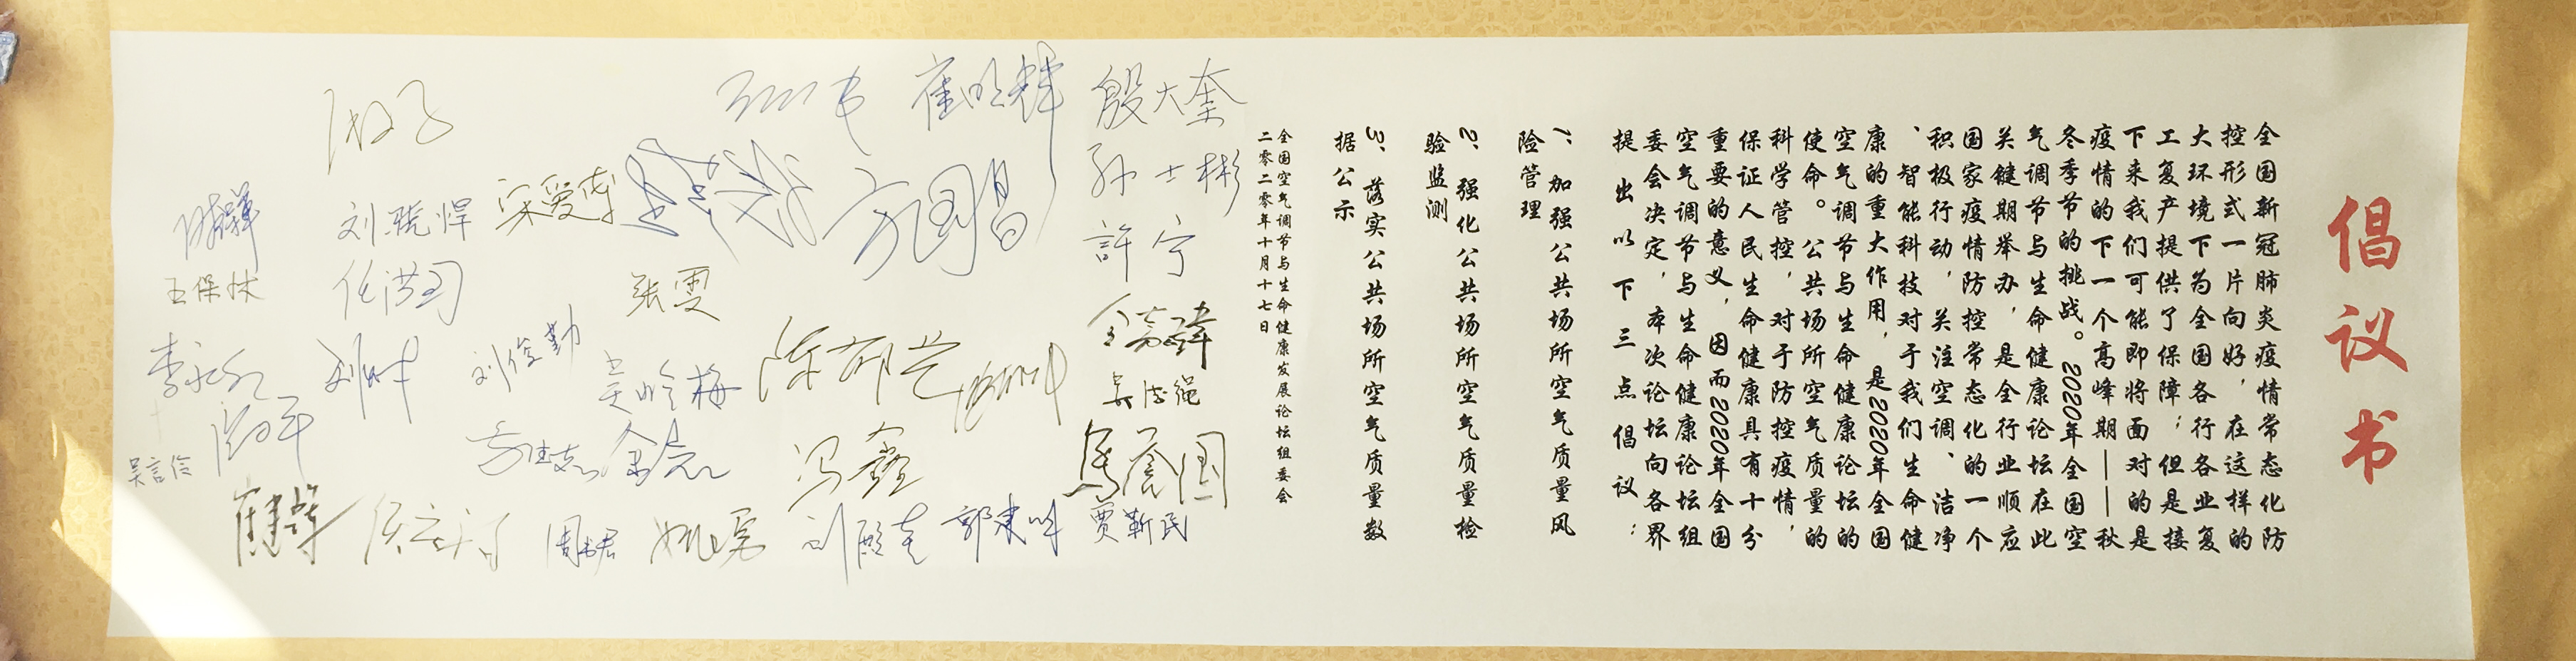 倡议书
全国新冠肺炎疫情常态化防
控形式一片向好，在这样的
大环境下为全国各行各业复
工复产提供了保障；但是接
下来我们可能即将面对的是
疫情的下一个高峰期——秋
冬季节的挑战。2020年全国空
气调节与生命健康论坛在此
关键期举办，是全行业顺应
国家疫情防控常态化的一个
积极行动，关注空调、洁净
、智能科技对于我们生命健
康的重大作用，是2020年全国
空气调节与生命健康论坛的
使命。公共场所空气质量的
科学管控，对于防控疫情，
保证人民生命健康具有十分
重要的意义，因而2020年全国
空气调节与生命健康论坛组
委会决定，本次论坛向各界
提出以下三点倡议：
1、加强公共场所空气质量风
险管理
2、强化公共场所空气质量检
验监测
3、落实公共场所空气质量数
据公示
全国空气调节与生命健康发展论坛组委会
二零二零年十月十七日
殷大奎
孙士彬
許宁
吴德绳
贾靳民
崔明辉
方国昌
冯鑫
张雯
宋爱萍
刘俊勤
姚勇
王保林